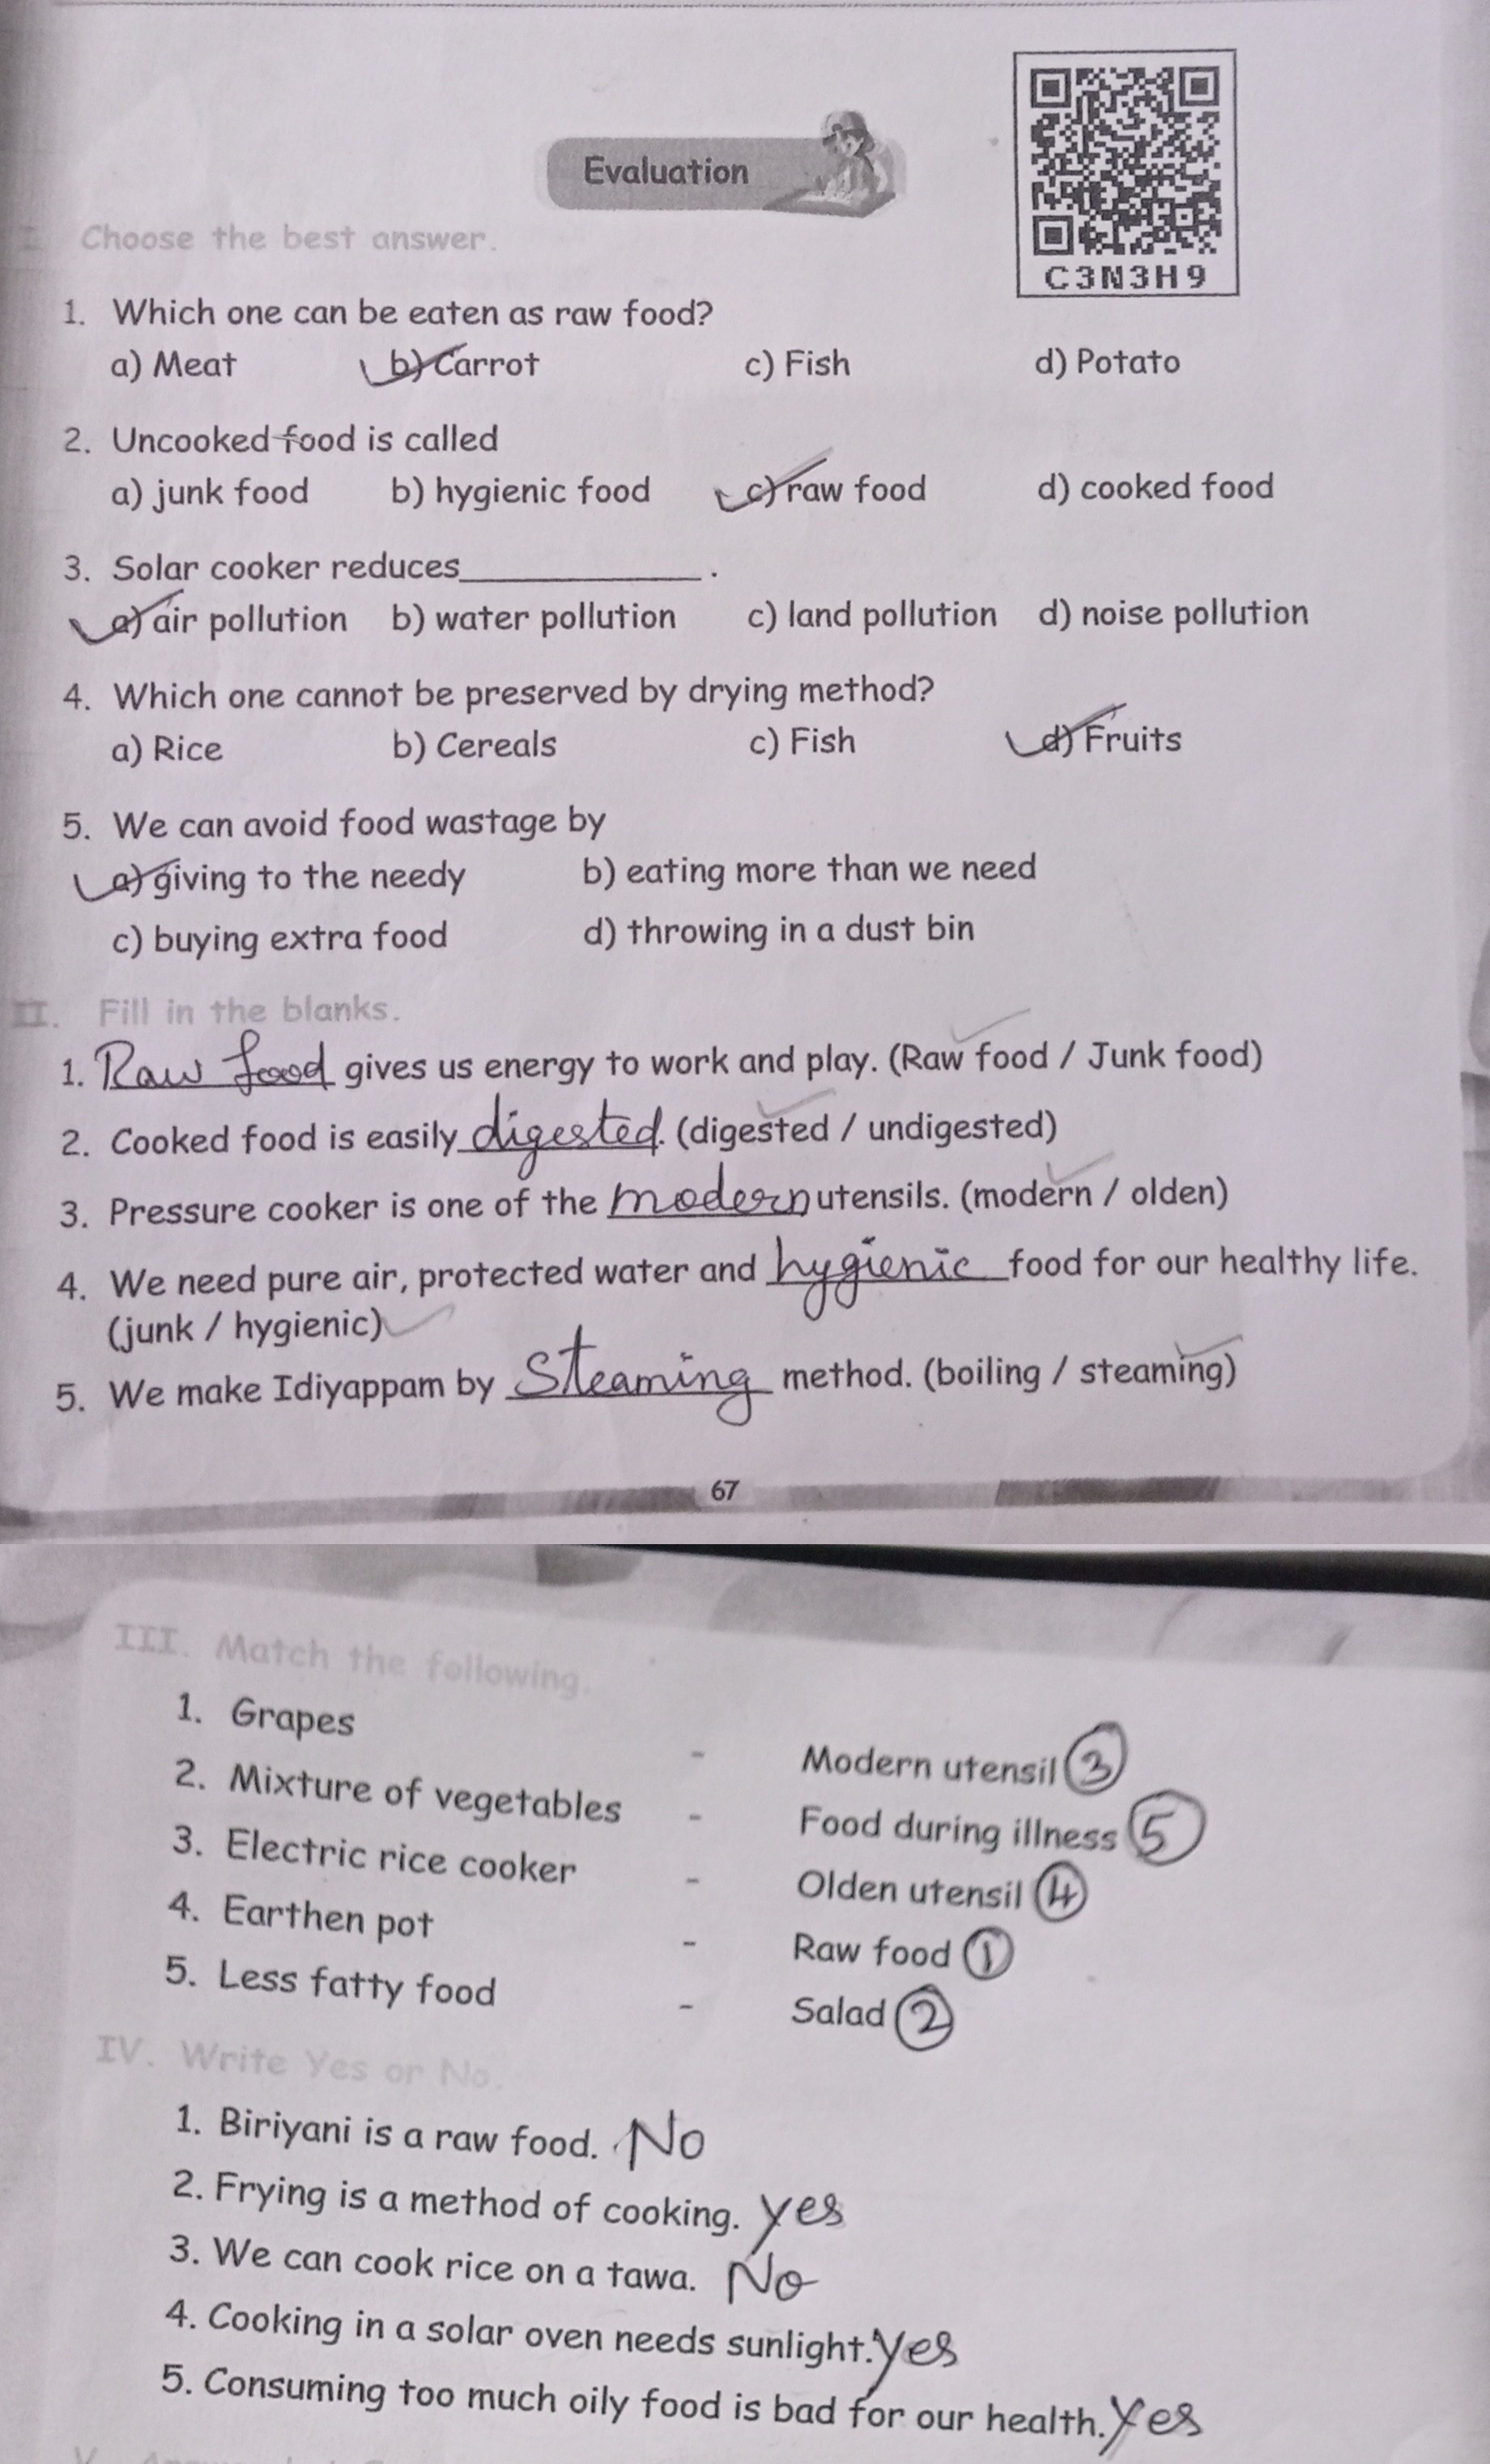 Evaluation
C3N3H9
I Choose the best answer.
1. Which one can be eaten as raw food?
a) Meat b) Carrot c) Fish d) Potato
2. Uncooked food is called
a) junk food b) hygienic food c) raw food d) cooked food
3. Solar cooker reduces____________.
a) air pollution b) water pollution c) land pollution d) noise pollution
4. Which one cannot be preserved by drying method?
a) Rice b) Cereals c) Fish d) Fruits
5. We can avoid food wastage by
a) giving to the needy b) eating more than we need
c) buying extra food d) throwing in a dust bin
II. Fill in the blanks.
1. Raw food gives us energy to work and play. (Raw food / Junk food)
2. Cooked food is easily digested. (digested / undigested)
3. Pressure cooker is one of the modern utensils. (modern / olden)
4. We need pure air, protected water and hygienic food for our healthy life.
(junk / hygienic)
5. We make Idiyappam by Steaming method. (boiling / steaming)
67
III. Match the following.
1. Grapes - Modern utensil 3
2. Mixture of vegetables - Food during illness 5
3. Electric rice cooker - Olden utensil 4
4. Earthen pot - Raw food 1
5. Less fatty food - Salad 2
IV. Write Yes or No.
1. Biriyani is a raw food. No
2. Frying is a method of cooking. yes
3. We can cook rice on a tawa. No
4. Cooking in a solar oven needs sunlight. yes
5. Consuming too much oily food is bad for our health. Yes